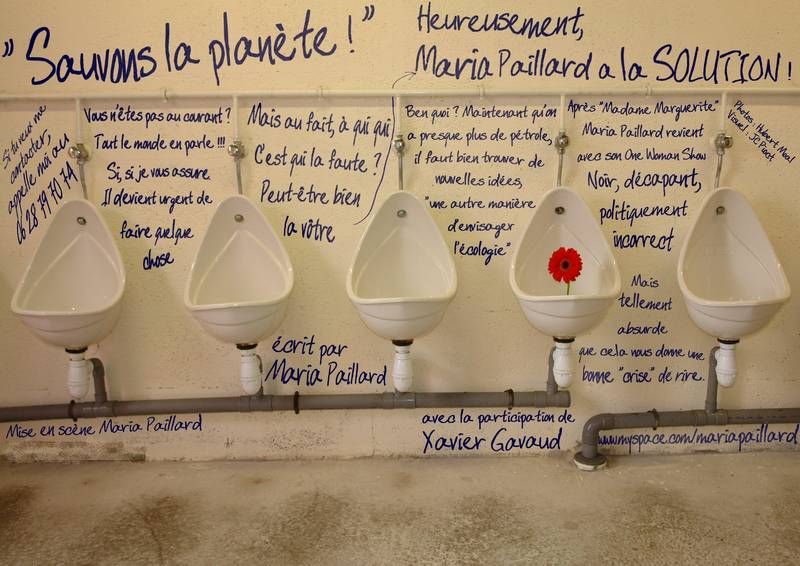 "Sauvons la planète !"
Heureusement,
Maria Paillard a la SOLUTION !
Si tu veux me
contacter,
appelle moi au
06 28 79 70 74
Vous n'êtes pas au courant ?
Tout le monde en parle !!!
Si, si, je vous assure.
Il devient urgent de
faire quelque
chose
Mais au fait, à qui qui
C'est qui la faute ?
Peut-être bien
la vôtre
Ben quoi ? Maintenant qu'on
a presque plus de pétrole,
il faut bien trouver de
nouvelles idées,
"une autre manière
d'envisager
l'écologie"
Après "Madame Marguerite"
Maria Paillard revient
avec son One Woman Show
Noir, décapant,
politiquement
incorrect
Mais
tellement
absurde
que cela nous donne une
bonne "crise" de rire.
Photos : Hubert
Visuel : JC
écrit par
Maria Paillard
Mise en scène Maria Paillard
avec la participation de
Xavier Gavaud
www.myspace.com/mariapaillard